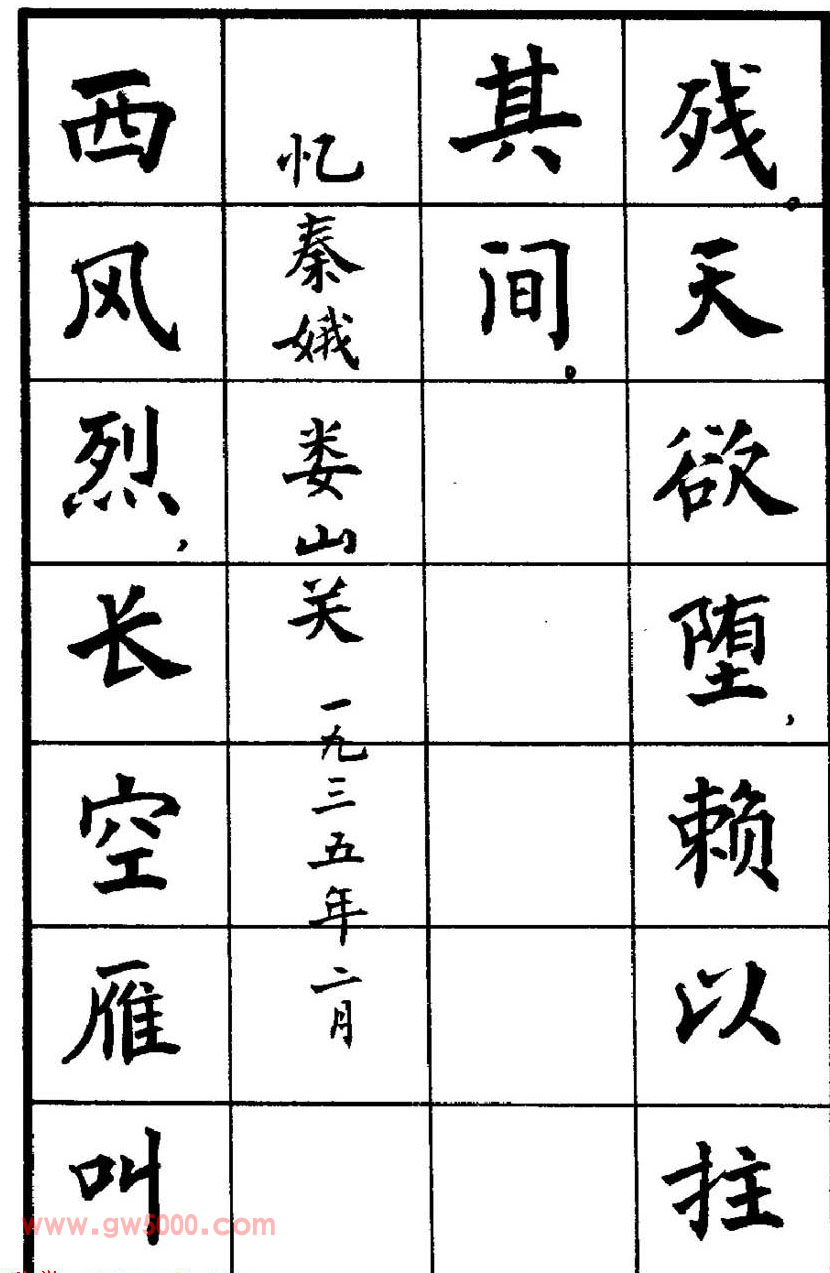 残。天欲堕，赖以拄
其间。
忆秦娥 娄山关 一九三五年二月
西风烈，长空雁叫
www.gw5000.com